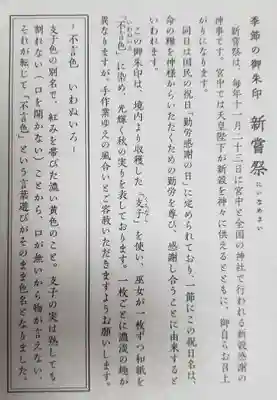 季節の御朱印 新嘗祭 にいなめさい
新嘗祭は、毎年十一月二十三日に宮中と全国の神社で行われる新穀感謝の
神事です。宮中では天皇陛下が新穀を神々に供えるとともに、御自らお召上
がりになります。
同日は国民の祝日「勤労感謝の日」に定められており、一節にこの祝日名は、
命の糧を神様からいただくための勤労を尊び、感謝し合うことに由来すると
いわれます。
この御朱印は、境内より収穫した「支子」を使い、巫女が一枚ずつ和紙を
「不言色」に染め、光輝く秋の実りを表しております。一枚ごとに濃淡の趣が
異なりますが、手作業ゆえの風合いとご容赦いただきますようお願いします。
－不言色 いわぬいろ－
支子色の別名で、紅みを帯びた濃い黄色のこと。支子の実は熟しても
割れない（口を開かない）ことから、口が無いから物が言えない、
それが転じて「不言色」という言葉遊びがそのまま色名となりました。